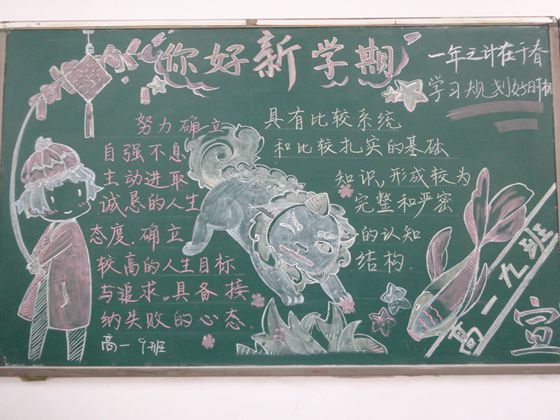 你好新学期
一年之计在于春
学习规划好时机
努力确立
自强不息
主动进取
诚恳的人生
态度.确立
较高的人生目标
与追求.具备接
纳失败的心态.
高一9班
具有比较系统
和比较扎实的基础
知识,形成较为
完整和严密
的认知
结构.
高一九班
宣